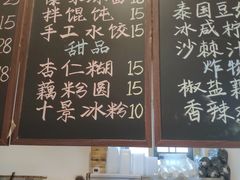 15
拌馄饨 15
手工水饺 15
甜品
杏仁糊 15
藕粉圆 15
十景冰粉 10
5
28
28
泰国豆
冰咸柠
沙棘汁
炸物
椒盐藕
香辣